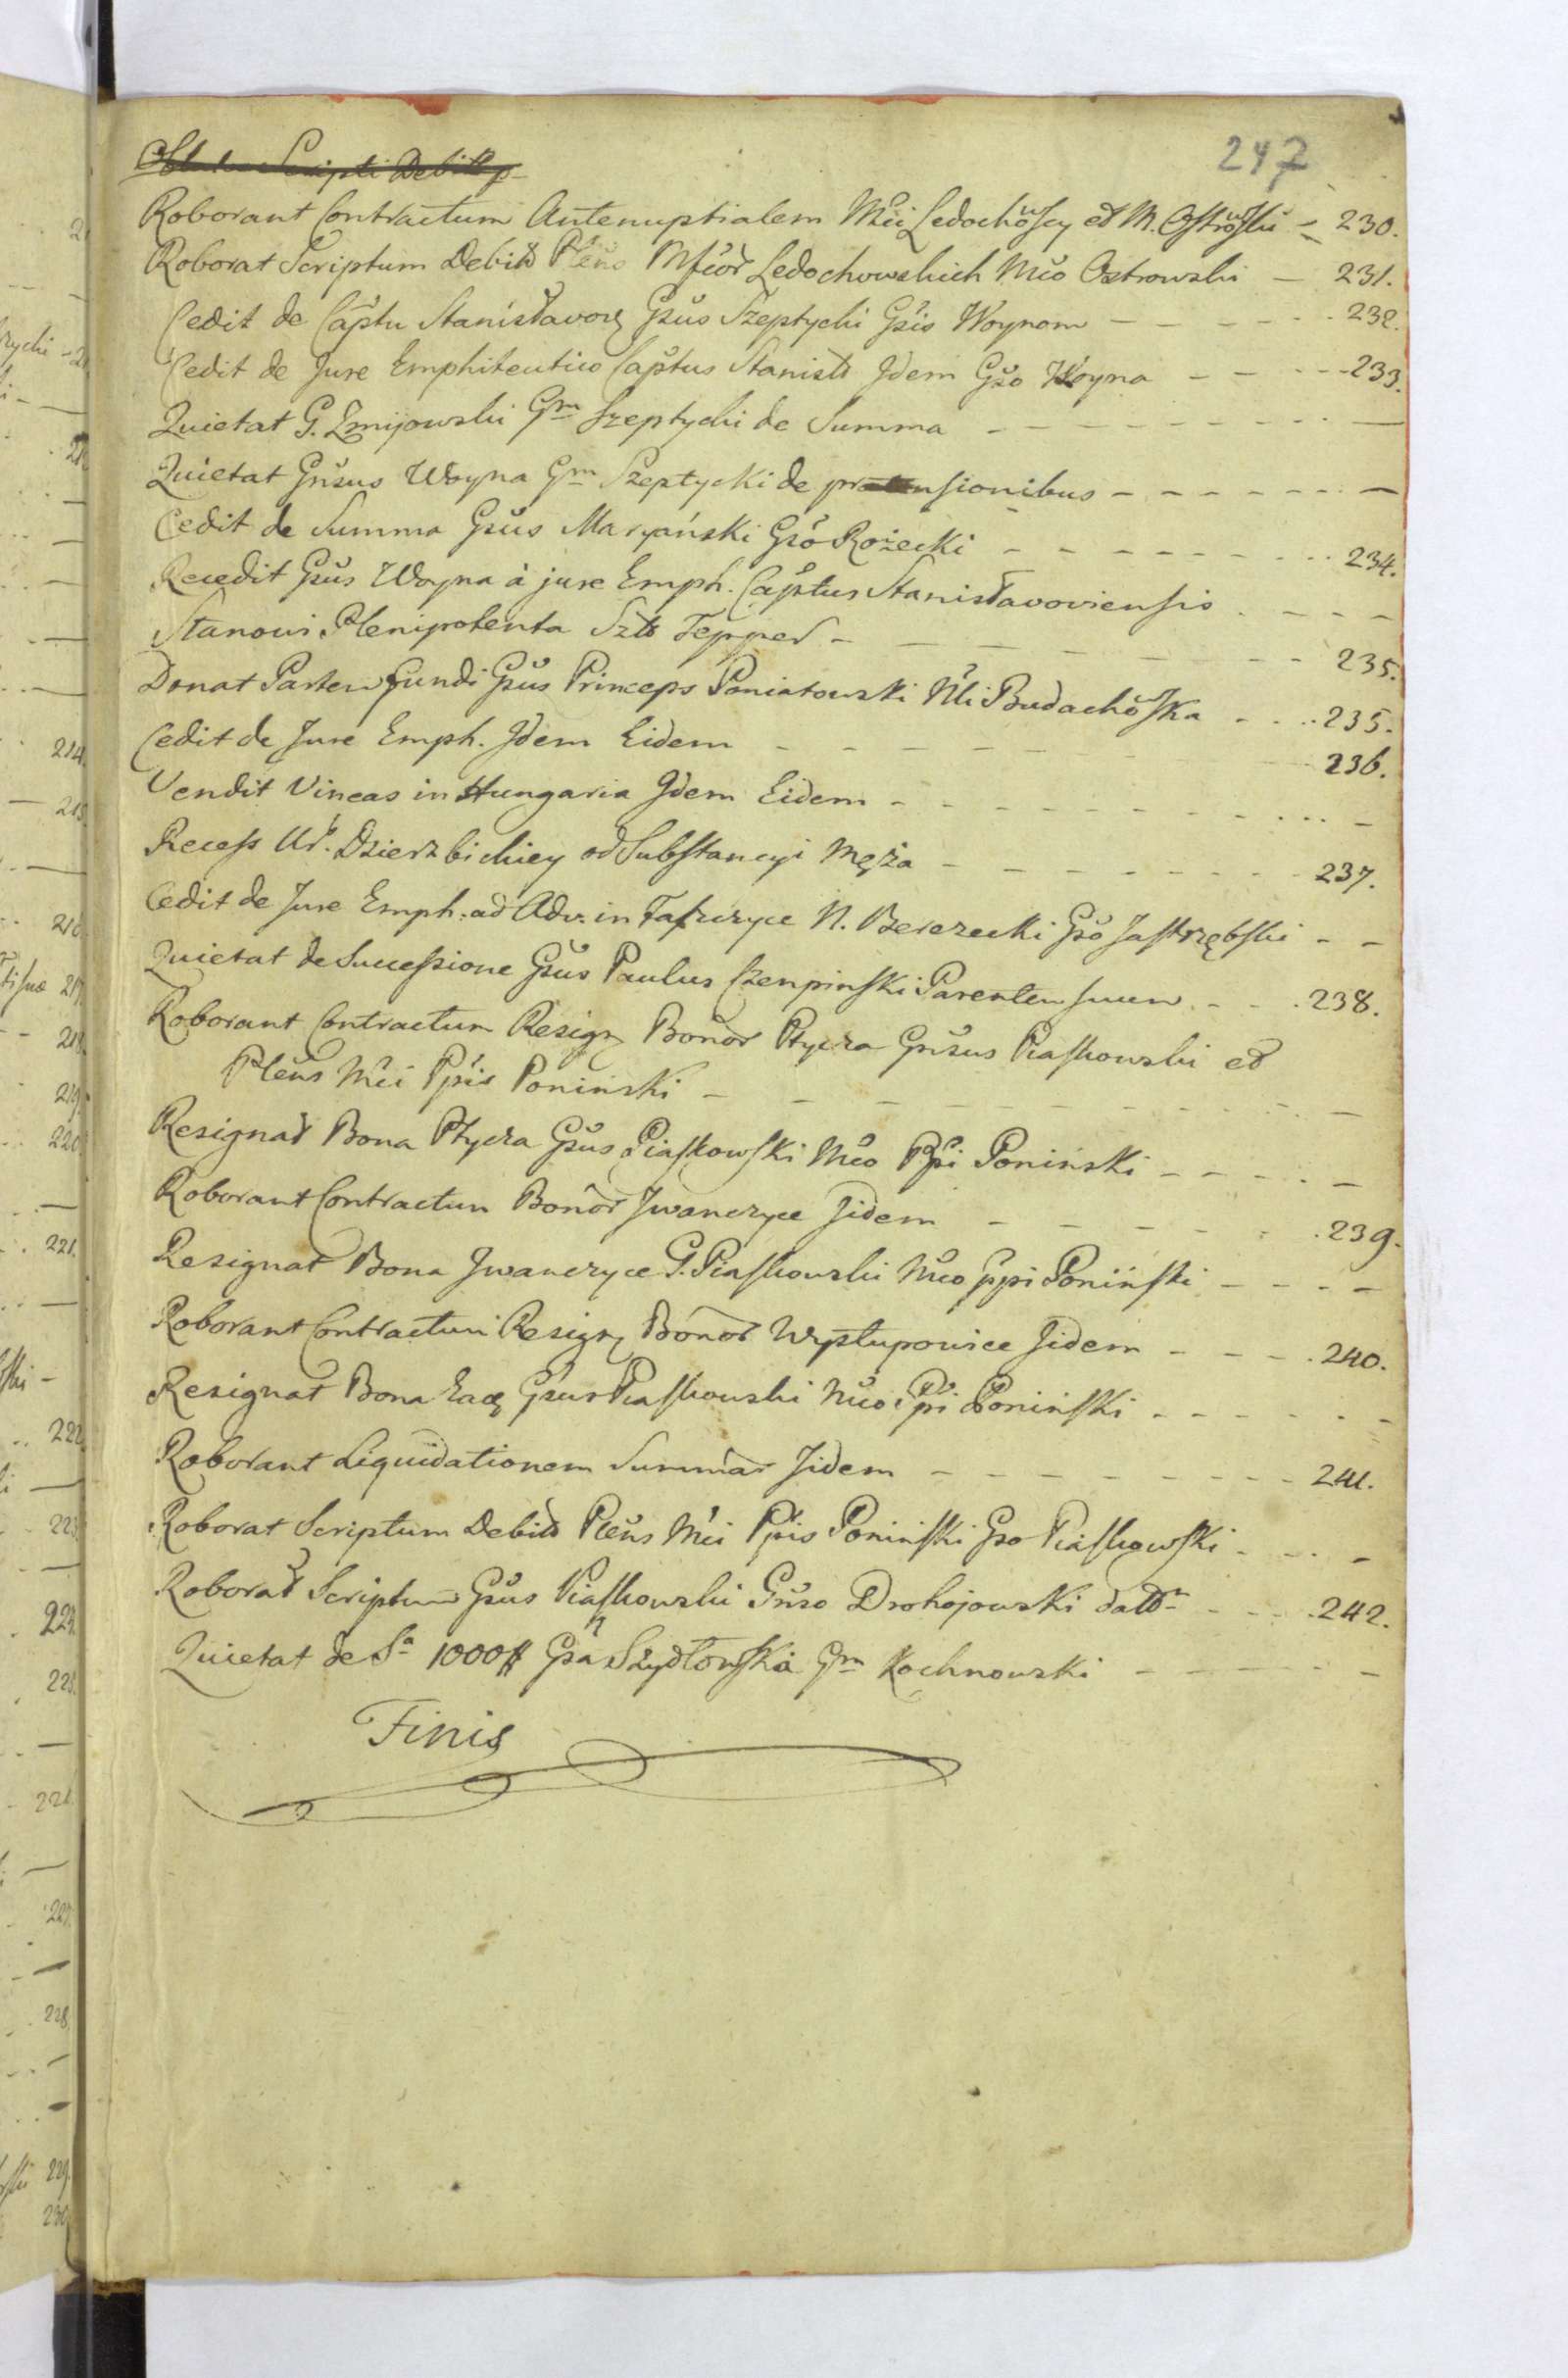 247
Scripti Debiti
Roborant Contractum Antenuptialem Mci Ledochowscy et M. Ostrowski - 230.
Roborat Scriptum Debiti Plenus Mficor Ledochowskich Mco Ostrowski - 231.
Cedit de Captu Stanisławow Gsus Szeptycki Gsis Woynom - - - - - 232.
Cedit de Jure Emphiteutico Captus Stanisl Jdem Gso Woyna - - - - 233.
Quietat G. Zmijowski Gm Szeptycki de Summa - - - - - - - -
Quietat Gnsus Woyna Gm Szeptycki de praetensionibus - - - - - - -
Cedit de Summa Gsus Maryański Gso Rożecki - - - - - - - 234.
Recedit Gsus Woyna à jure Emph. Captus Stanisławoviensis - - - -
Stanowi Plenipotenta Szl Tepper - - - - - - - - 235.
Donat Partem fundi Gsus Princeps Poniatowski Mli Budachowska - - - 235.
Cedit de Jure Emph. Jdem Eidem - - - - - - - 236.
Vendit Vineas in Hungaria Jdem Eidem - - - - - - - - -
Recess Ur. Dzierzbickiey od Substancyi Męża - - - - - - - 237.
Cedit de Jure Emph. ad Adv. in N. Berezecki Gso Jastrzębski - -
Quietat de Successione Gsus Paulus Czenpinski Parentem suum - - - 238.
Roborant Contractum Resigņ Bonor Ptycza Gnsus Piaskowski et
Plenus Mci Ppis Poniński - - - - - - - - - -
Resignat Bona Ptycza Gsus Piaskowski Mco Ppi Poniński - - - - -
Roborant Contractum Bonor Jwanczyce Jidem - - - - - - 239.
Resignat Bona Jwanczyce G. Piaskowski Mco Ppi Poniński - - - -
Roborant Contractum Resigņ Bonor Wystupowice Jidem - - - - 240.
Resignat Bona Eaq Gsus Piaskowski Mco Ppi Poniński - - - - - -
Roborant Liquidationem Summar Jidem - - - - - - - - 241.
Roborat Scriptum Debiti Plenus Mci Ppis Poniński Gso Piaskowski - - - -
Roborat Scriptum Gsus Piaskowski Gnso Drohojowski - - - 242.
Quietat de Sa 1000 # Gsa Szydłowska Gm Kochnowski - - - - - -
Finis